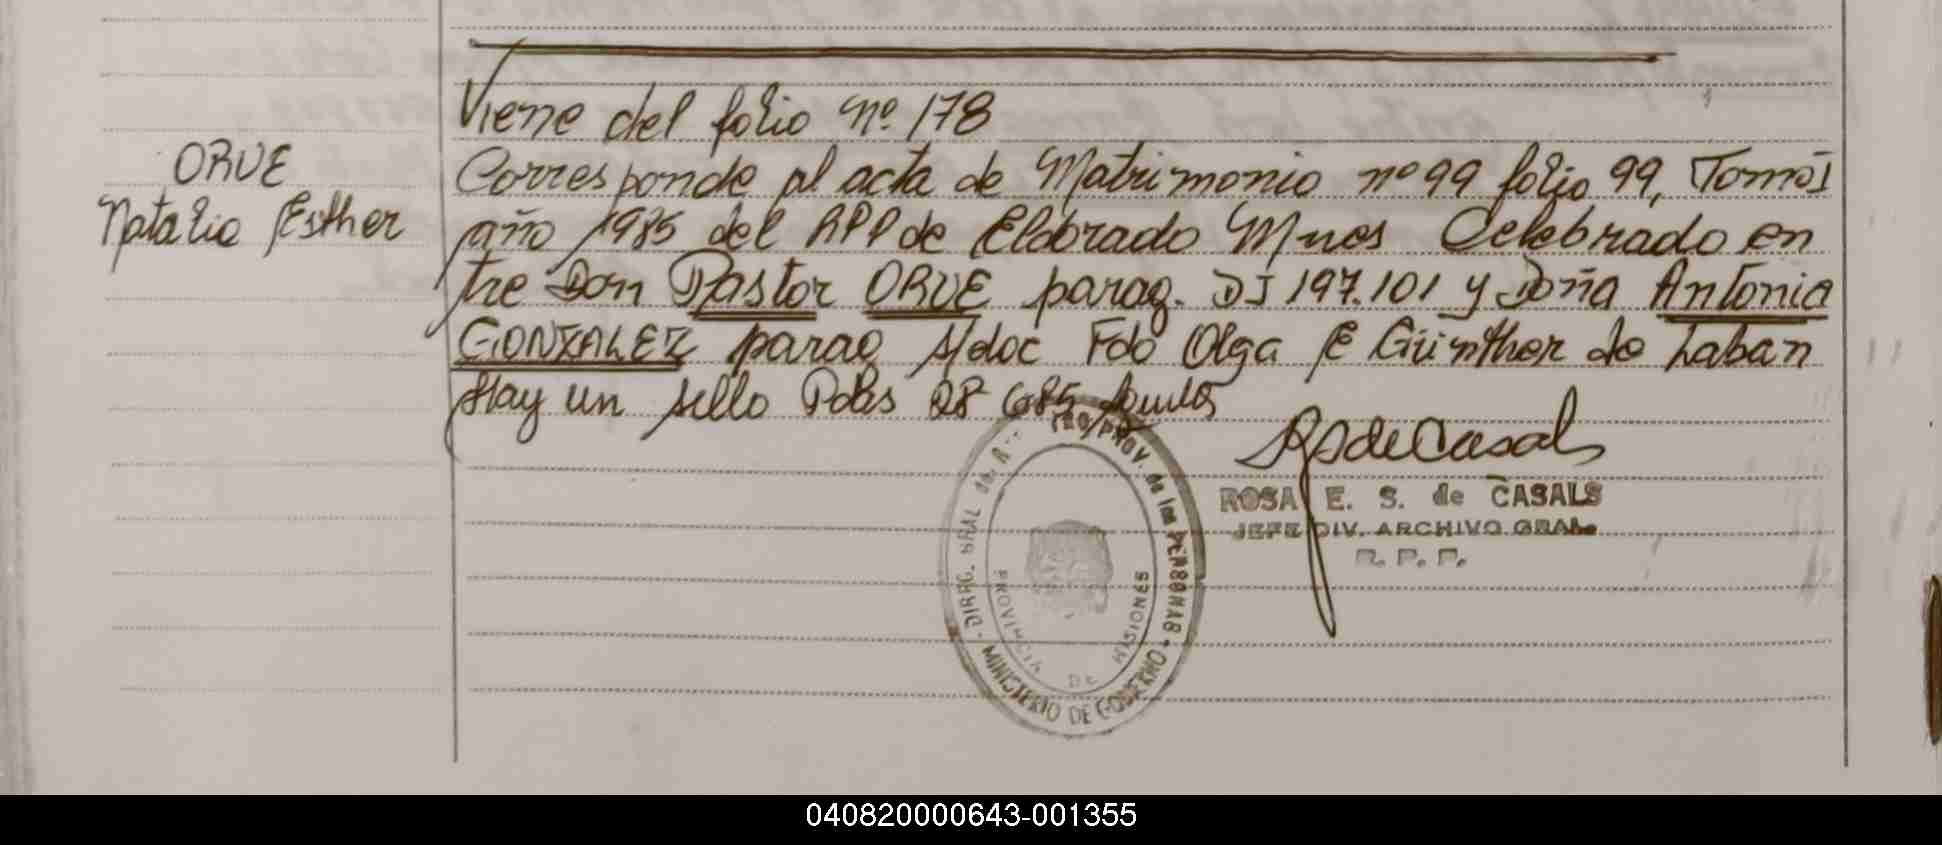 Viene del folio Nº 178
ORUE
Natalia Esther
Corresponde al acta de Matrimonio nº 99 folio 99, Tomo I
año 1985 del RPP de Eldorado Mnes Celebrado en
tre Don Pastor ORUE parag. DI 197.101 y Doña Antonia
GONZALEZ parag S/doc Fdo Olga E Günther de Laban
Hay un sello Pdas 28 6 85
RSdeCasals
ROSA E. S. de CASALS
JEFE DIV. ARCHIVO GRAL.
R. P. P.
DIREC. GRAL del PROV. de las PERSONAS
MINISTERIO DE GOBIERNO
PROVINCIA DE MISIONES
040820000643-001355